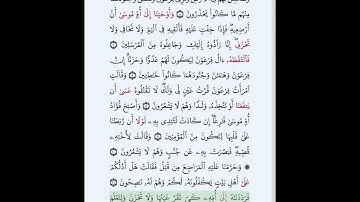 مِنْهُم مَّا كَانُوا۟ يَحْذَرُونَ ۝ وَأَوْحَيْنَآ إِلَىٰٓ أُمِّ مُوسَىٰٓ أَنْ
أَرْضِعِيهِ ۖ فَإِذَا خِفْتِ عَلَيْهِ فَأَلْقِيهِ فِى ٱلْيَمِّ وَلَا تَخَافِى وَلَا
تَحْزَنِىٓ ۖ إِنَّا رَآدُّوهُ إِلَيْكِ وَجَاعِلُوهُ مِنَ ٱلْمُرْسَلِينَ ۝
فَٱلْتَقَطَهُۥٓ ءَالُ فِرْعَوْنَ لِيَكُونَ لَهُمْ عَدُوًّا وَحَزَنًا ۗ إِنَّ
فِرْعَوْنَ وَهَٰمَٰنَ وَجُنُودَهُمَا كَانُوا۟ خَٰطِـِٔينَ ۝ وَقَالَتِ
ٱمْرَأَتُ فِرْعَوْنَ قُرَّتُ عَيْنٍ لِّى وَلَكَ ۖ لَا تَقْتُلُوهُ عَسَىٰٓ أَن
يَنفَعَنَآ أَوْ نَتَّخِذَهُۥ وَلَدًا وَهُمْ لَا يَشْعُرُونَ ۝ وَأَصْبَحَ فُؤَادُ
أُمِّ مُوسَىٰ فَٰرِغًا ۖ إِن كَادَتْ لَتُبْدِى بِهِۦ لَوْلَآ أَن رَّبَطْنَا
عَلَىٰ قَلْبِهَا لِتَكُونَ مِنَ ٱلْمُؤْمِنِينَ ۝ وَقَالَتْ لِأُخْتِهِۦ
قُصِّيهِ ۖ فَبَصُرَتْ بِهِۦ عَن جُنُبٍ وَهُمْ لَا يَشْعُرُونَ ۝
۞ وَحَرَّمْنَا عَلَيْهِ ٱلْمَرَاضِعَ مِن قَبْلُ فَقَالَتْ هَلْ أَدُلُّكُمْ
عَلَىٰٓ أَهْلِ بَيْتٍ يَكْفُلُونَهُۥ لَكُمْ وَهُمْ لَهُۥ نَٰصِحُونَ ۝
فَرَدَدْنَٰهُ إِلَىٰٓ أُمِّهِۦ كَىْ تَقَرَّ عَيْنُهَا وَلَا تَحْزَنَ وَلِتَعْلَمَ